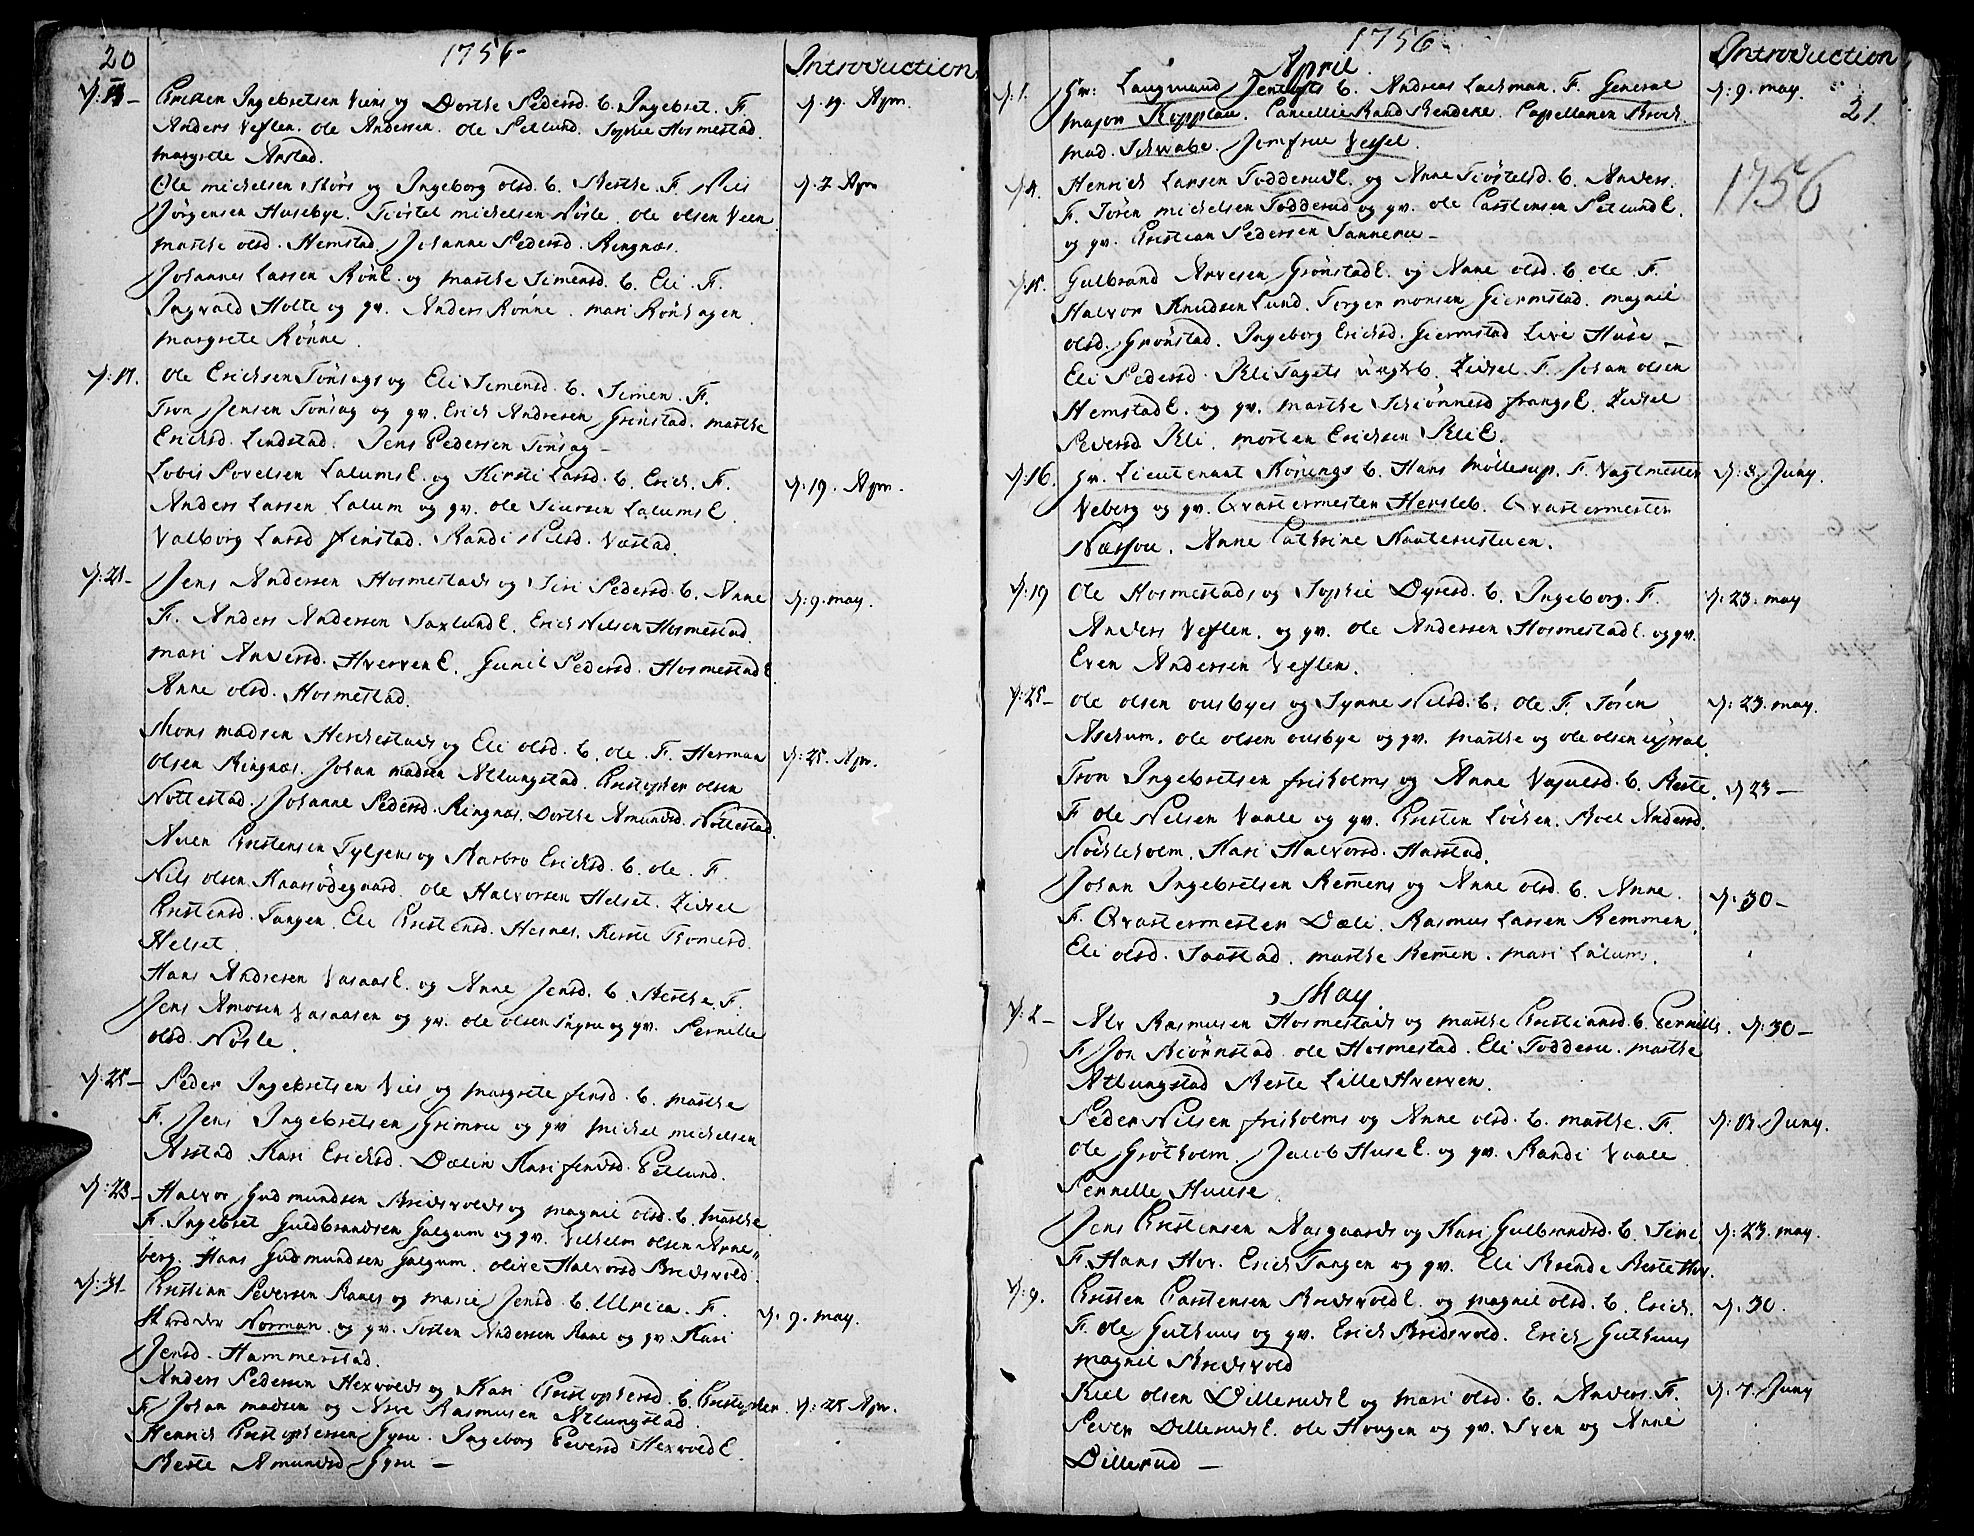 20
1756-
Introduction
d: 14- Christen Ingebretsen Viens og Dorthe Pedersd. b. Ingebret. F.
d. 19. Apr.
Anders Veflen. Ole Andersen. Ole Setlund. Sophie Hosmestad.
margrete Arstad.
Ole michelsen Mørs og Ingeborg olsd. b. Berthe. F. Niels
d. 7 Apr
Jørgensen Husebye. Tiøstel michelsen Nøsle. ole olsen Veen
marthe olsd. Hemstad. Johanne Pedersd. Ringnæs.
Johannes Larsen Røn E. og marthe Simensd. b. Eli. F.
Ingvald Holte og gv. Anders Rønne. mari Rønhagen.
margrete Rønne.
d: 17. Ole Erichsen Tønsags og Eli Simensd. b. Simen. F.
Tron Jensen Tønsag og gv. Erich Andresen Grønstad. marthe
Erichsd. Lindstad. Jens Pedersen Tønsag-
Lobis Povelsen Lalums E. og Kirsti Larsd. b. Erich. F.
d. 19. Apr.
Anders Larsen Lalum og gv. ole Siursen Lalums E.
Valborg Larsd finstad. Randi Nilsd. Vastad.
d: 21- Jens Andersen Hosmestads og Siri Pedersd. b. Anne
d. 9. may.
F. Anders Andersen Saxlund E. Erich Nilsen Hosmestad.
mari Andersd. Hverven E. Gunil Pedersd. Hosmestad E.
Anne olsd. Hosmestad.
Mons madsen Herchestads og Eli olsd. b. ole. F. Herman
d: 25. Apr.
olsen Ringnæs. Johan madsen Atlungstad. Christopher olsen
Nottestad. Johanne Pedersd. Ringnæs. Dorthe Amundsd. Nottestad.
Auen Christensen Tyljens og Barbro Erichsd. b. ole. F.
Nils olsen Kaarsødegaard. ole Halvorsen Helset. Zidsel
Christensd. Tangen. Eli Christensd. Hesnes. Kerste Thomesd.
Helset.
Hans Andresen Vasaas E. og Anne Jensd. b. Berthe. F.
Jens Amosen Vasaasen og gv. ole olsen Nyru og gv. Pernille
olsd. Nøsle.
d: 25- Peder Ingebretsen Vies og margrete finsd. b. marthe
F. Jens Ingebretsen Grimru og gv michel michelsen
Arstad. Kari Erichsd. Dælin Kari findsd. Setlund.
d: 28- Halvor Gudmundsen Bredsvolds og magnil olsd. b. marthe.
F. Ingebret Guldbrandsen Galgum og gv. Vilhelm olsen Arne-
berg. Hans Gudmundsen Galgum. olive Halvorsd Bredsvold.
d: 31- Christian Pedersen Raaes og marie Jensd. b. Ulrica. F.
d: 9. may.
Norman og gv. Tosten Andersen Raae og gv Kari
Jensd. Hammerstad.
Anders Pedersen Hexvolds og Kari Christophersd. b. Christopher.
d: 25 Apr.
F Johan madsen og Rasmusen Atlungstad.
Henrich Christophersen Gyru. Ingeborg Pedersd Hexvold E.
Berte Amundsd Gyru-
1756-
April.
Introduction
21.
d. 1. Hr: Laugmand Jentofts b. Andreas Lachman. F. General
d. 9. may.
major Kopplau. CancellieRaad Bendeke. Capellanen Broch.
mad. Schwabe. Jomfrue Vessel.
1756
d. 4. Henrich Larsen Todderuds E. og Anne Tiøstelsd. b. Anders.
F. Søren michelsen Todderud og gv. ole Carstensen Setlund E.
og gv. Christian Pedersen Sanneru-
d. 15. Gulbrand Arvesen Grønstad E. og Anne olsd. b. ole. F.
Halvor Knudsen Lund. Torger monsen Giermstad. magnil
olsd. Grønstad. Ingeborg Erichsd. Giermstad Live Huse-
Eli Pedersd. b. Zidsel. F. Johan olsen
Hemstad E. og gv. marthe Schiønnerd frangs E. Zidsel
Pedersd Kli. morten Erichsen Kli E.
d. 16. Hr. Lieutenant Kønings b. Hans Møllerup. F. Vagtmester
d: 8. Juny.
Veberg og gv. Qvartermester Hersleb. Qvartermester
Næssou. Anne Cathrine Nauterustuen.
d. 19 Ole Hosmestads og Sophie Dyresd. b. Ingeborg. F.
d: 23. may
Anders Veflen. og gv. ole Andersen Hosmestad E. og gv.
Even Andersen Veflen.
d: 25- Ole olsen ousbyes og Synne Nilsd. b. ole. F. Søren
d: 23. may.
Aschum. ole olsen ousbye og gv. marthe og ole olsen
Tron Ingebretsen frisholms og Anne Vasulsd. b. Berte.
d 23-
F. ole Nilsen Vaale og gv. Christen Løchen. Roel Andersd.
Nøchleholm. Kari Halvorsd. Harstad.
Johan Ingebretsen Remens og Anne olsd. b. Anne.
d: 30-
F. Qvartermester Dæli. Rasmus Larsen Remmen.
Eli olsd. Saastad. marthe Remen. mari Lalum.
May.
d: 2- Alv Rasmusen Hosmestads og marthe Christiansd. b. Pernille.
d: 30-
F. Jon Biørnstad. ole Hosmestad. Eli Todderu. marthe
Atlungstad Berte Lille Hverven.
Peder Nilsen frisholms og Anne olsd. b. marthe. F.
d: 13. Juny.
Ole Grøtholm. Jacob Huse E. og gv. Randi Vaale.
Pernille Huuse.
Jens Christensen Aasgaards og Kari Gulbrandsd. b. Siri
d: 23. may.
F. Hans Hov. Erich Tangen og gv. Eli Brende Berte Hov.
d: 9. Christen Carstensen Bredsvold E. og magnil olsd. b. Erich.
d: 30.
F. ole Guthuus og gv. Erich Bredsvold. Erich Guthuus
magnil Bredsvold
Kiel olsen Dilleruds E og mari olsd. b. Anders. F.
d: 7. Juny
Peder Dilleruds E. ole Hougen og gv. Sven og Anne
Dillerud-